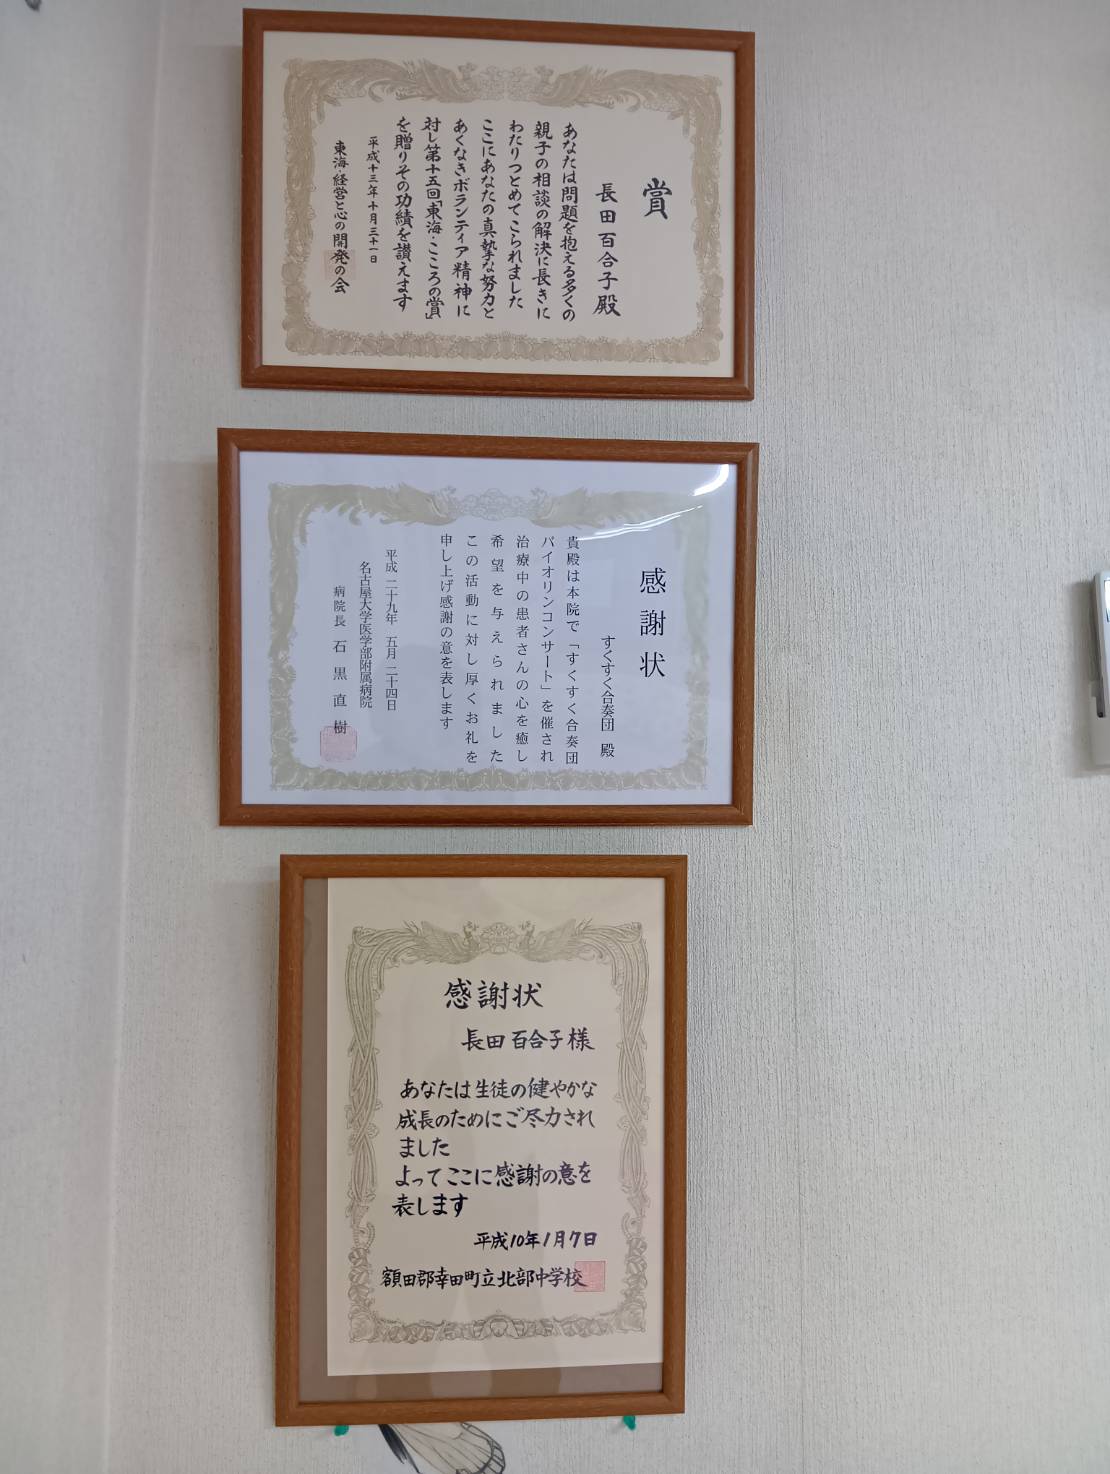 賞
長田百合子殿
あなたは問題を抱える多くの
親子の相談の解決に長きに
わたりつとめてこられました
ここにあなたの真摯な努力と
あくなきボランティア精神に
対し第十五回「東海・こころの賞」
を贈りその功績を讃えます
平成十三年十月三十一日
東海・経営と心の開発の会
感謝状
すくすく合奏団 殿
貴殿は本院で「すくすく合奏団
バイオリンコンサート」を催され
治療中の患者さんの心を癒し
希望を与えられました
この活動に対し厚くお礼を
申し上げ感謝の意を表します
平成二十九年 五月二十四日
名古屋大学医学部附属病院
病院長 石黒直樹
感謝状
長田百合子様
あなたは生徒の健やかな
成長のためにご尽力され
ました
よってここに感謝の意を
表します
平成10年1月7日
額田郡幸田町立北部中学校